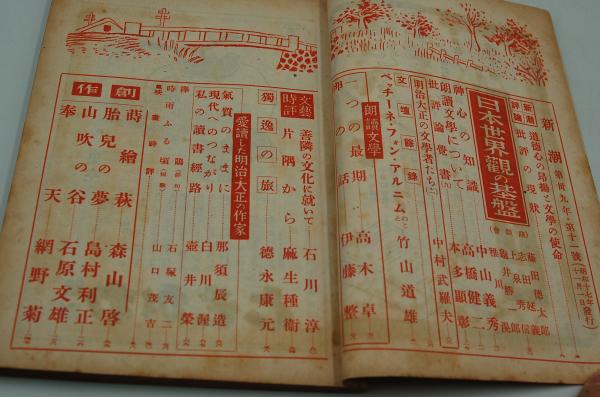 新潮 第卅九年・第十一號
昭和十七年十一月一日發行
新潮評論
道徳心の昂揚と文學の使命
批評の現狀
日本世界觀の基盤
藤田德太郎
志田延義
上泉秀信
龜井勝一郎
中山義秀
神の知識
朗讀文學について
高橋健二
批評論覺書
本多顯彰
明治大正の文學者たち
中村武羅夫
文壇餘錄
ベッチーネ・フォン・アルニムのこと
竹山道雄
朗讀文學
一つの最期
高木卓
伊藤整
文藝時評
善隣の文化に就いて
石川淳
片隅から
麻生種衛
獨逸の旅
德永康元
愛讀した明治・大正の作家
氣質のままに
那須辰造
現代へのつながり
白川渥
私の讀書經路
壺井榮
石塚友二
時雨ふる頃
山口茂吉
創作
蒔繪萩
森山啓
胎兒の夢
島村利正
山吹の谷
石原文雄
奉天
網野菊